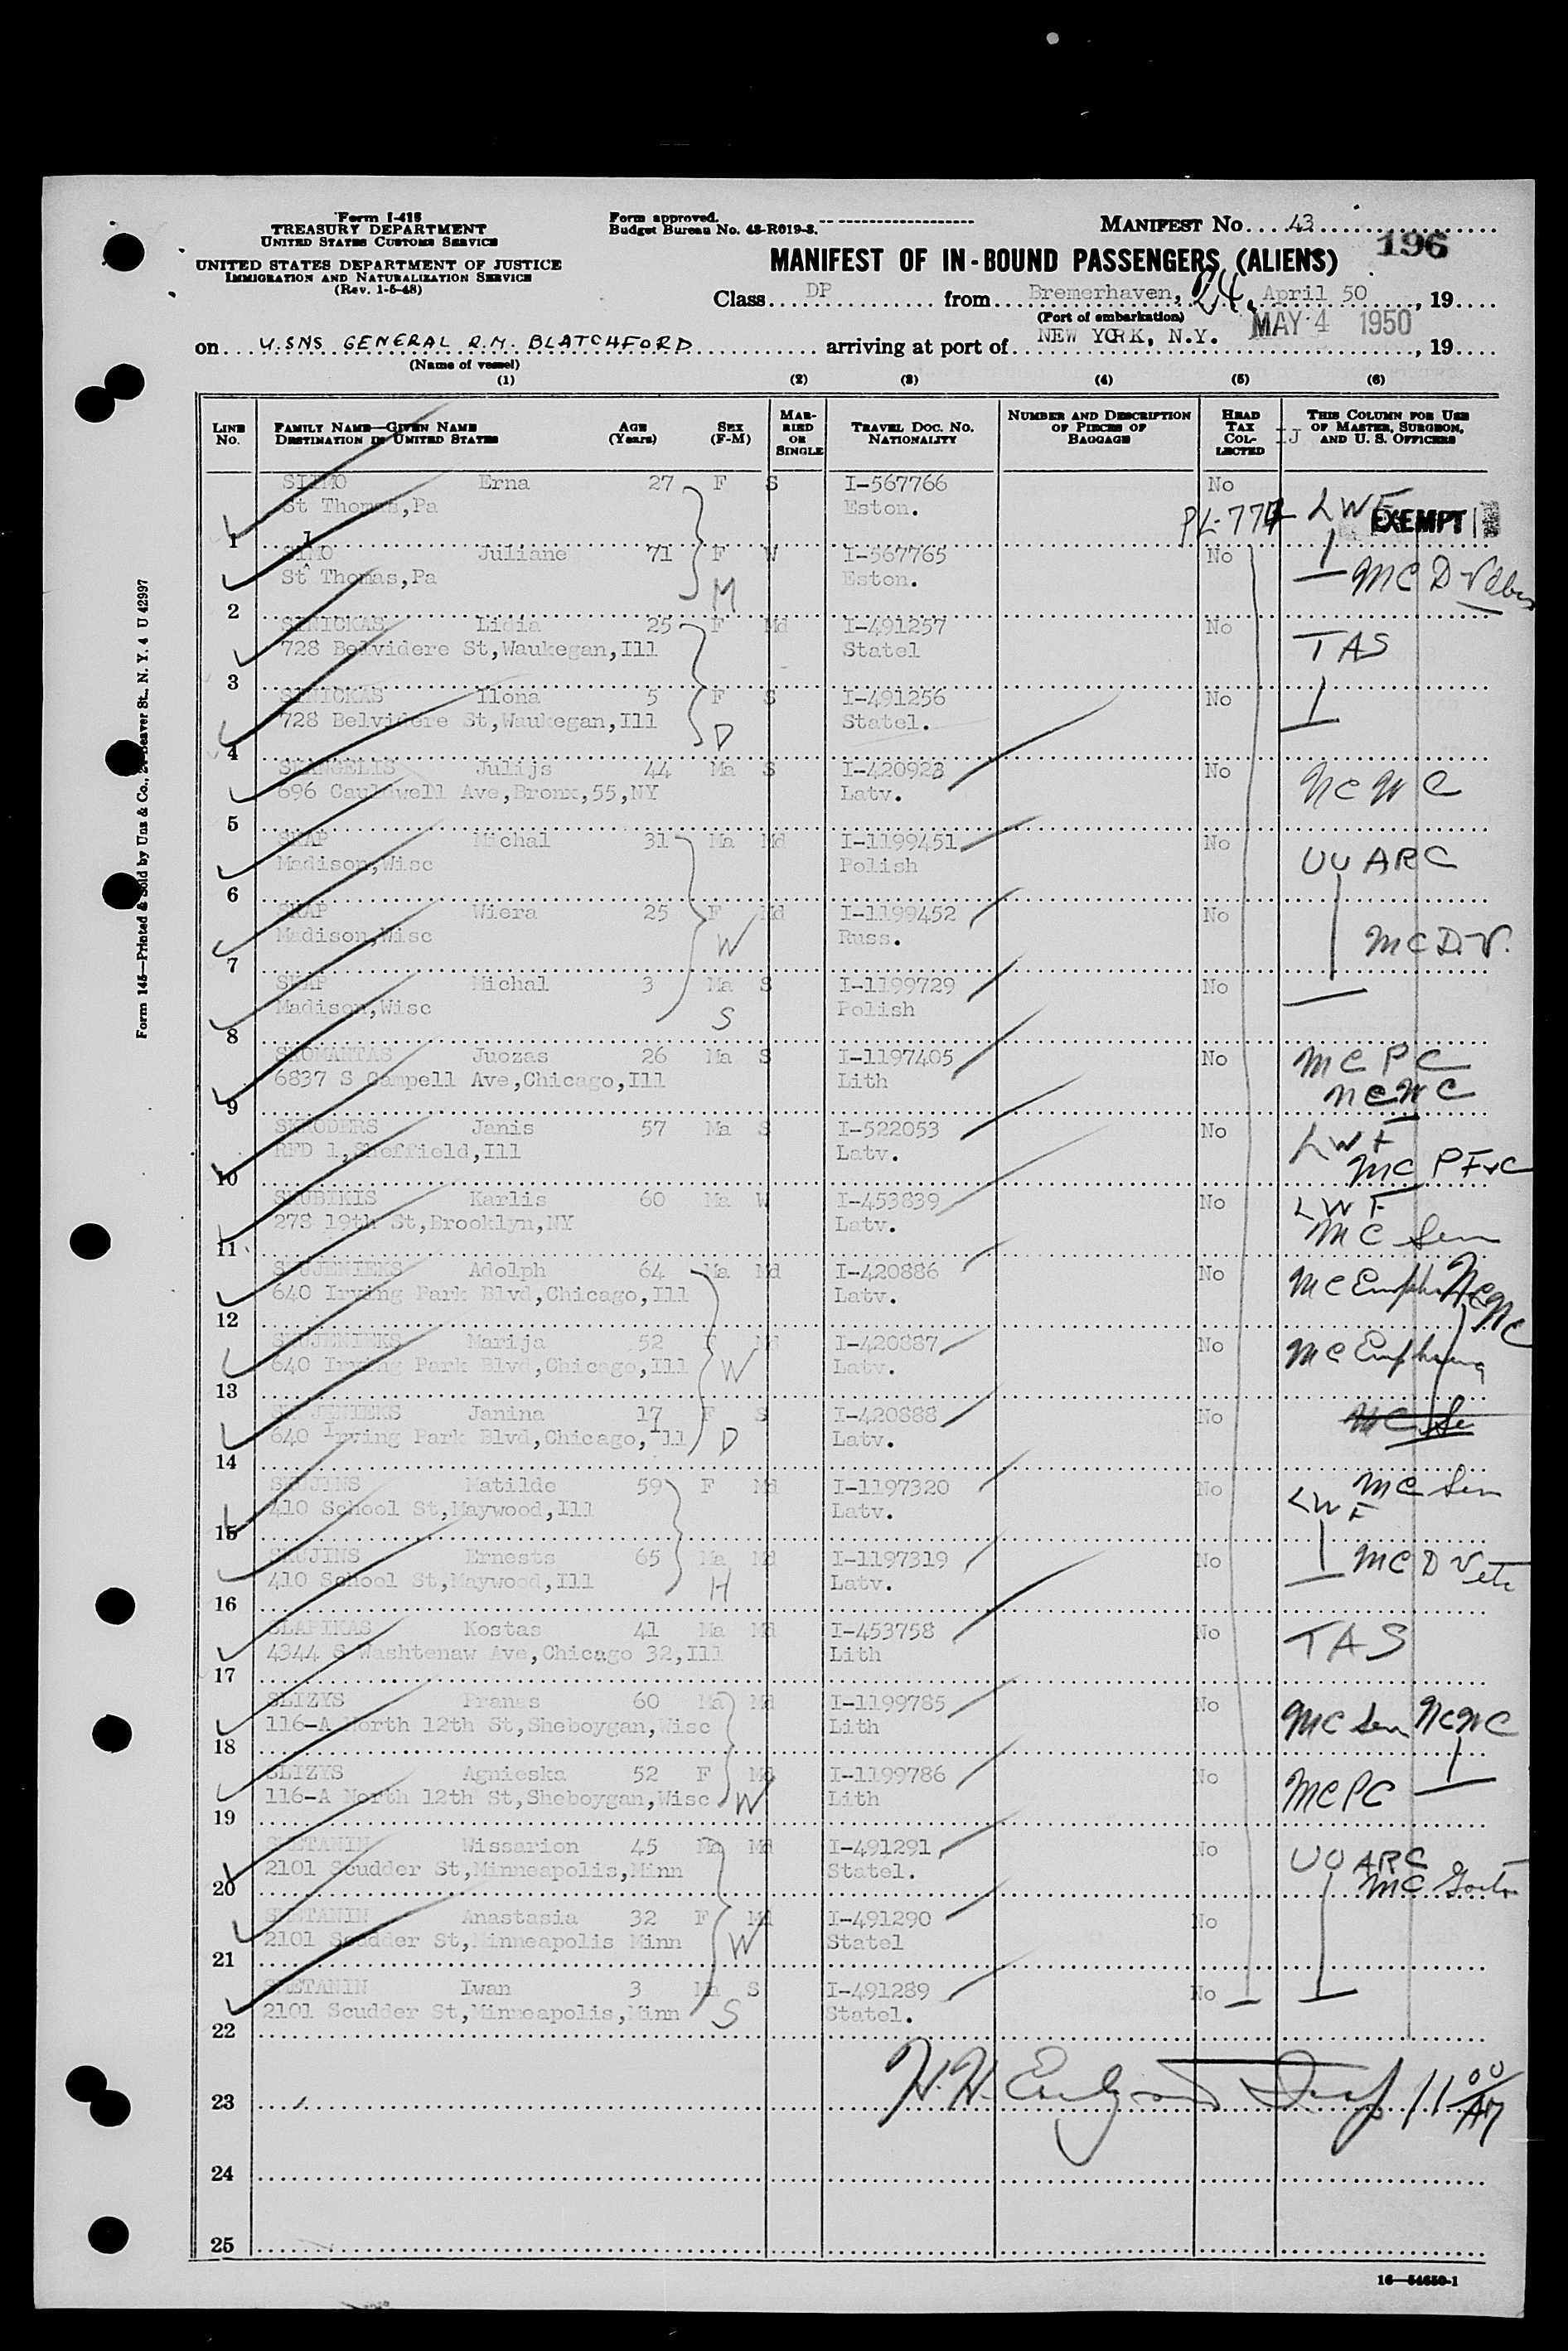 Form I-418
TREASURY DEPARTMENT
UNITED STATES CUSTOMS SERVICE
UNITED STATES DEPARTMENT OF JUSTICE
IMMIGRATION AND NATURALIZATION SERVICE
(Rev. 1-5-48)
Form approved.
Budget Bureau No. 43-R019-3.
MANIFEST No. 43
196
MANIFEST OF IN-BOUND PASSENGERS (ALIENS)
Class DP from Bremerhaven, 24, April 50, 19
(Port of embarkation)
MAY 4 1950
on U.SNS GENERAL R.M. BLATCHFORD arriving at port of NEW YORK, N.Y., 19
(Name of vessel)
(1) (2) (3) (4) (5) (6)
LINE No.
FAMILY NAME—GIVEN NAME
DESTINATION IN UNITED STATES
AGE (Years)
SEX (F-M)
MARRIED OR SINGLE
TRAVEL DOC. No. NATIONALITY
NUMBER AND DESCRIPTION OF PIECES OF BAGGAGE
HEAD TAX COLLECTED
THIS COLUMN FOR USE OF MASTER, SURGEON, AND U. S. OFFICERS
IJ
SIIMO Erna 27 F S I-567766 No
St Thomas,Pa Eston. PL-774 LWF EXEMPT
1
SIMO Juliane 71 F W I-567765 No
St Thomas,Pa M Eston. MC D
2
SINICKAS Lidia 25 F Md I-491257 No
728 Belvidere St,Waukegan,Ill Statel TAS
3
SINICKAS Ilona 5 F S I-491256 No
728 Belvidere St,Waukegan,Ill D Statel.
4
SKANGELIS Julijs 44 Ma S I-420923 No
696 Cauldwell Ave,Bronx,55,NY Latv. NCWC
5
SKAP Michal 31 Ma Md I-1199451 No
Madison,Wisc Polish UUARC
6
SKAP Wiera 25 F Md I-1199452 No
Madison,Wisc W Russ. MC D.V.
7
SKAP Michal 3 Ma S I-1199729 No
Madison,Wisc S Polish
8
SKOMANTAS Juozas 26 Ma S I-1197405 No MC PC
6837 S Campell Ave,Chicago,Ill Lith NCWC
9
SKRODERS Janis 57 Ma S I-522053 No LWF
RFD 1,Sheffield,Ill Latv. MC
10
SKUBIKIS Karlis 60 Ma W I-453839 No LWF
278 19th St,Brooklyn,NY Latv. MC Sen
11
SKUJENIEKS Adolph 64 Ma Md I-420886 No
640 Irving Park Blvd,Chicago,Ill Latv. MC NCWC
12
SKUJENIEKS Marija 52 F Md I-420887 No
640 Irving Park Blvd,Chicago,Ill W Latv. MC
13
SKUJENIEKS Janina 17 F S I-420888 No
640 Irving Park Blvd,Chicago,Ill D Latv.
14
SKUJINS Matilde 59 F Md I-1197320 No MC Sen
410 School St,Maywood,Ill Latv. LWF
15
SKUJINS Ernests 65 Ma Md I-1197319 No
410 School St,Maywood,Ill H Latv. MC D
16
SLAPIKAS Kostas 41 Ma Md I-453758 No
4344 S Washtenaw Ave,Chicago 32,Ill Lith TAS
17
SLIZYS Pranas 60 Ma Md I-1199785 No
116-A North 12th St,Sheboygan,Wisc Lith MC Sen NCWC
18
SLIZYS Agnieska 52 F Md I-1199786 No
116-A North 12th St,Sheboygan,Wisc W Lith MCPC
19
SMETANIN Wissarion 45 Ma Md I-491291 No UUARC
2101 Scudder St,Minneapolis,Minn Statel. MC
20
SMETANIN Anastasia 32 F Md I-491290 No
2101 Scudder St,Minneapolis Minn W Statel
21
SMETANIN Iwan 3 Ma S I-491289 No
2101 Scudder St,Minneapolis,Minn S Statel.
22
23 11 00 AM
24
25
16—54650-1
Form 145—Printed & Sold by Unz & Co., Beaver St., N. Y. 4 U 42997